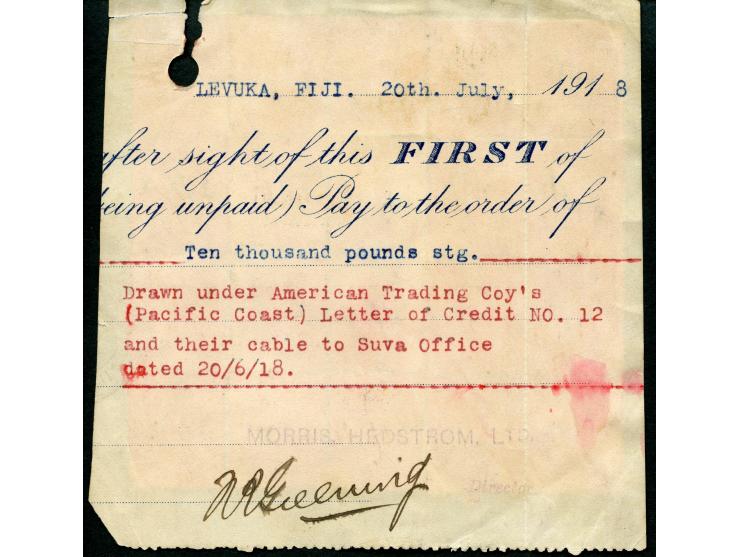 LEVUKA, FIJI. 20th. July, 1918
after sight of this FIRST of
being unpaid) Pay to the order of
Ten thousand pounds stg.
Drawn under American Trading Coy's
(Pacific Coast) Letter of Credit NO. 12
and their cable to Suva Office
dated 20/6/18.
MORRIS, HEDSTROM, LTD.
Director